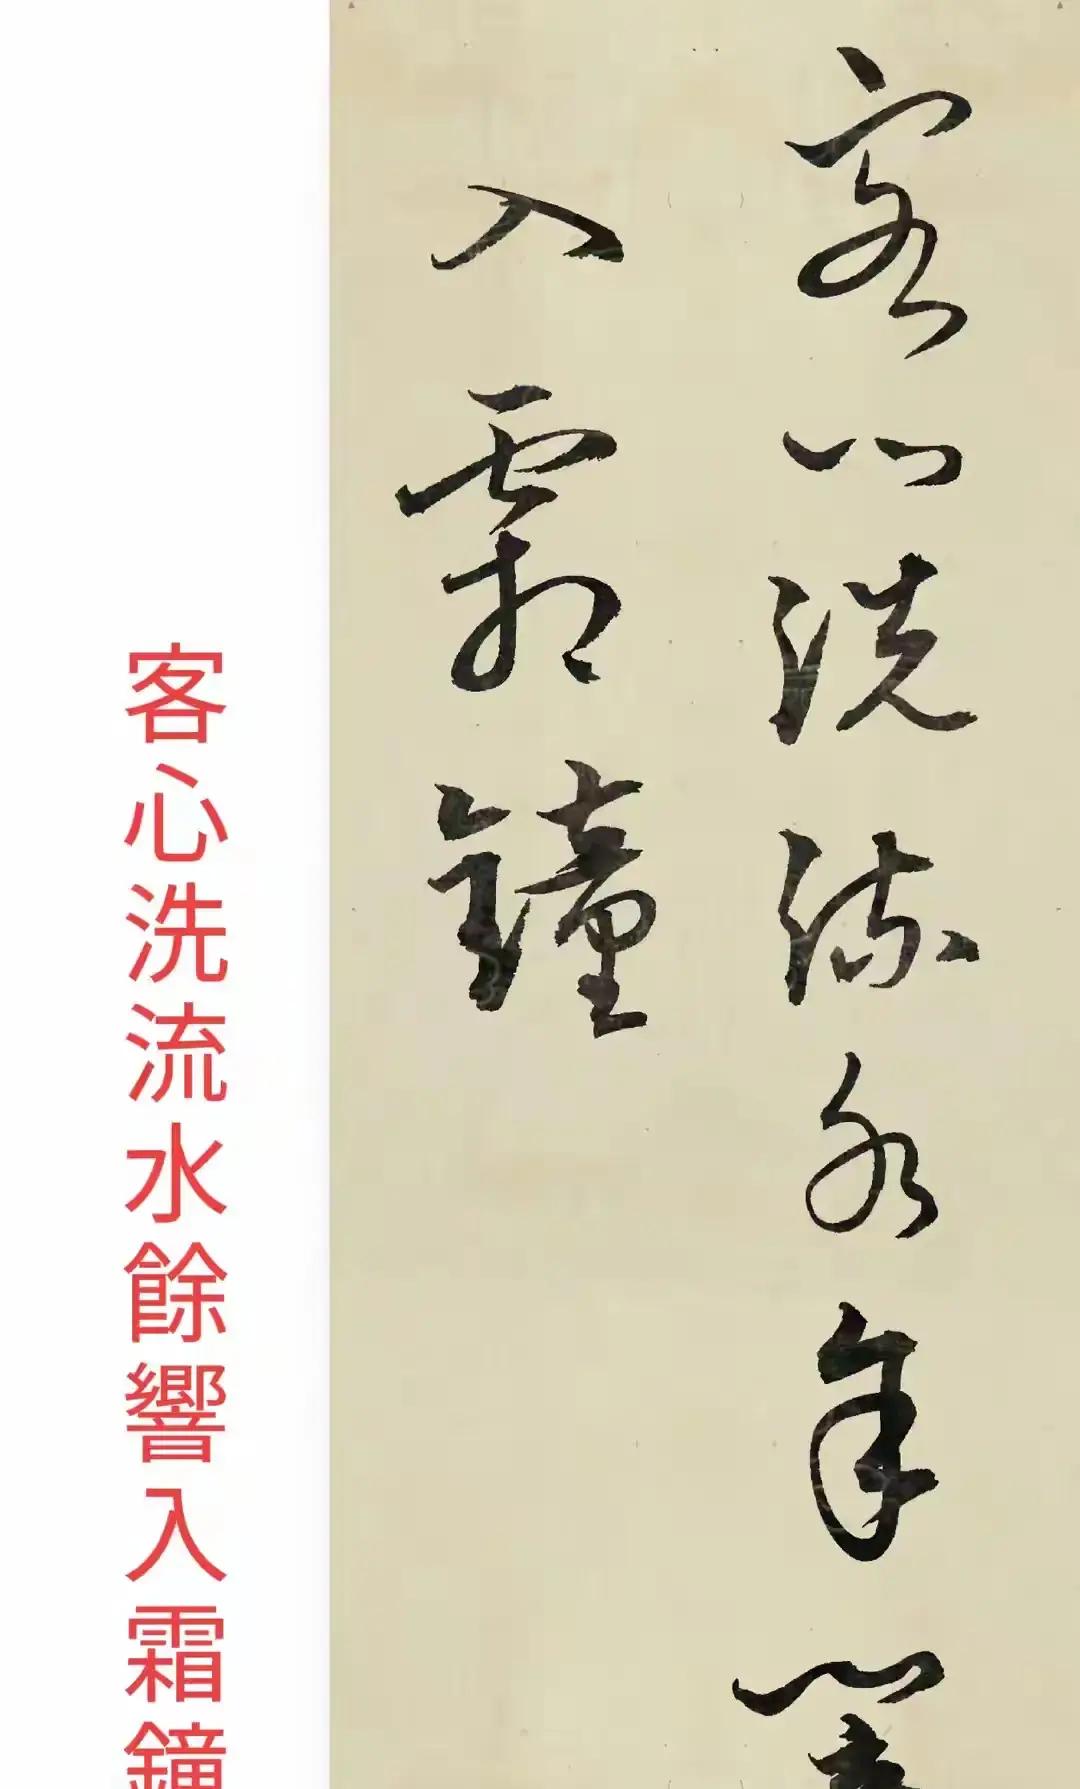 客心洗流水餘響
入霜鐘
客心洗流水餘響入霜鐘